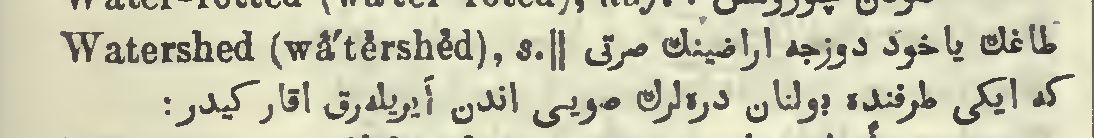 Watershed (wå′tėrshėd), s.‖ طاغك ياخود دوزجه اراضينك صرتى
كه ايكى طرفنده بولنان درەلرك صويى اندن آيريلەرق اقار كيدر :